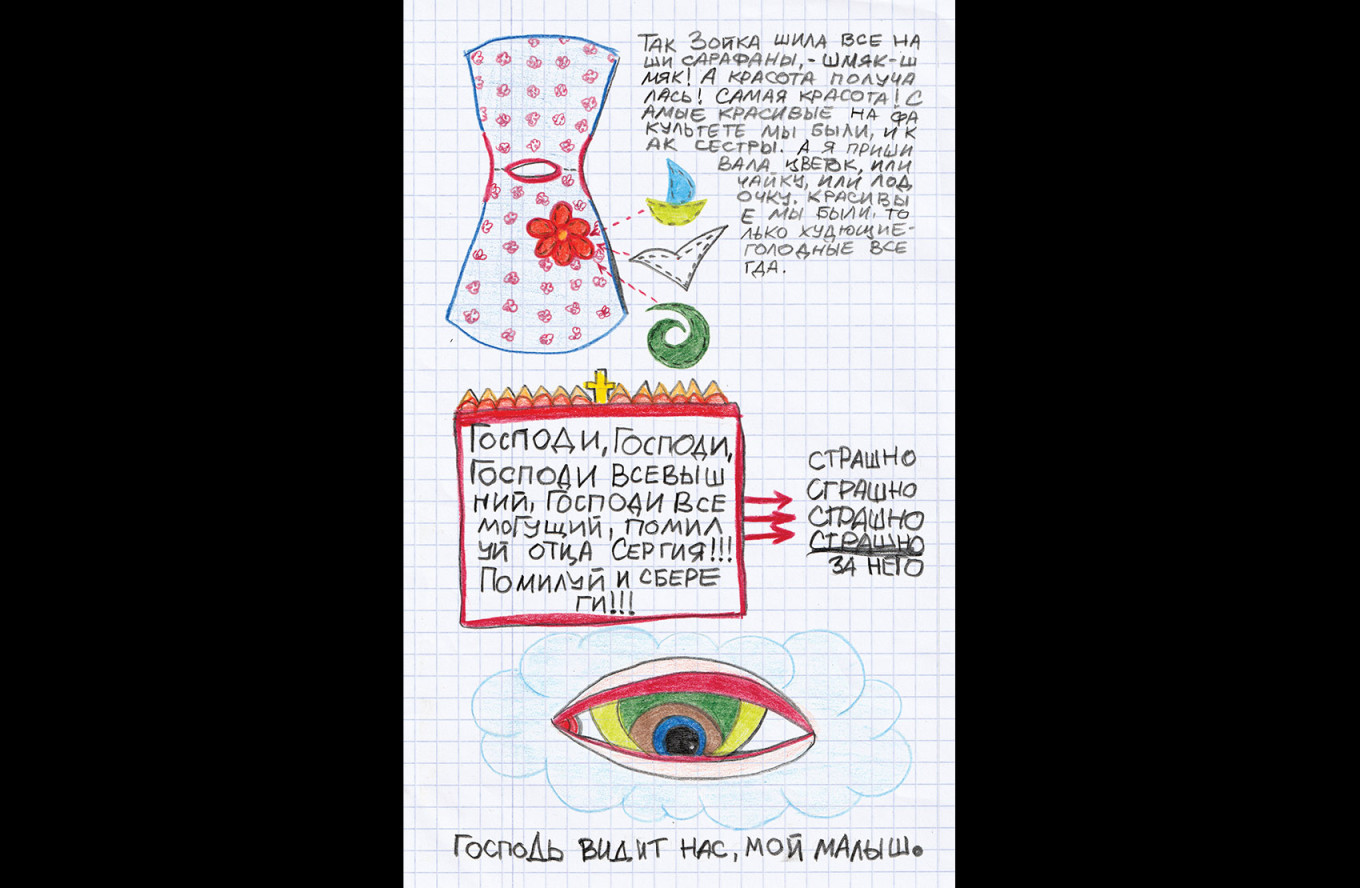 ТАК ЗОЙКА ШИЛА ВСЕ НА
ШИ САРАФАНЫ, - ШМЯК-Ш
МЯК! А КРАСОТА ПОЛУЧА
ЛАСЬ! САМАЯ КРАСОТА! С
АМЫЕ КРАСИВЫЕ НА ФА
КУЛЬТЕТЕ МЫ БЫЛИ, И К
АК СЕСТРЫ. А Я ПРИШИ
ВАЛА ЦВЕТОК, ИЛИ
ЧАЙКУ, ИЛИ ЛОД
ОЧКУ. КРАСИВЫ
Е МЫ БЫЛИ. ТО
ЛЬКО ХУДЮЩИЕ-
ГОЛОДНЫЕ ВСЕ
ГДА.
ГОСПОДИ, ГОСПОДИ,
ГОСПОДИ ВСЕВЫШ
НИЙ, ГОСПОДИ ВСЕ
МОГУЩИЙ, ПОМИЛ
УЙ ОТЦА СЕРГИЯ!!!
ПОМИЛУЙ И СБЕРЕ
ГИ!!!
СТРАШНО
СТРАШНО
СТРАШНО
СТРАШНО
ЗА НЕГО
ГОСПОДЬ ВИДИТ НАС, МОЙ МАЛЫШ.